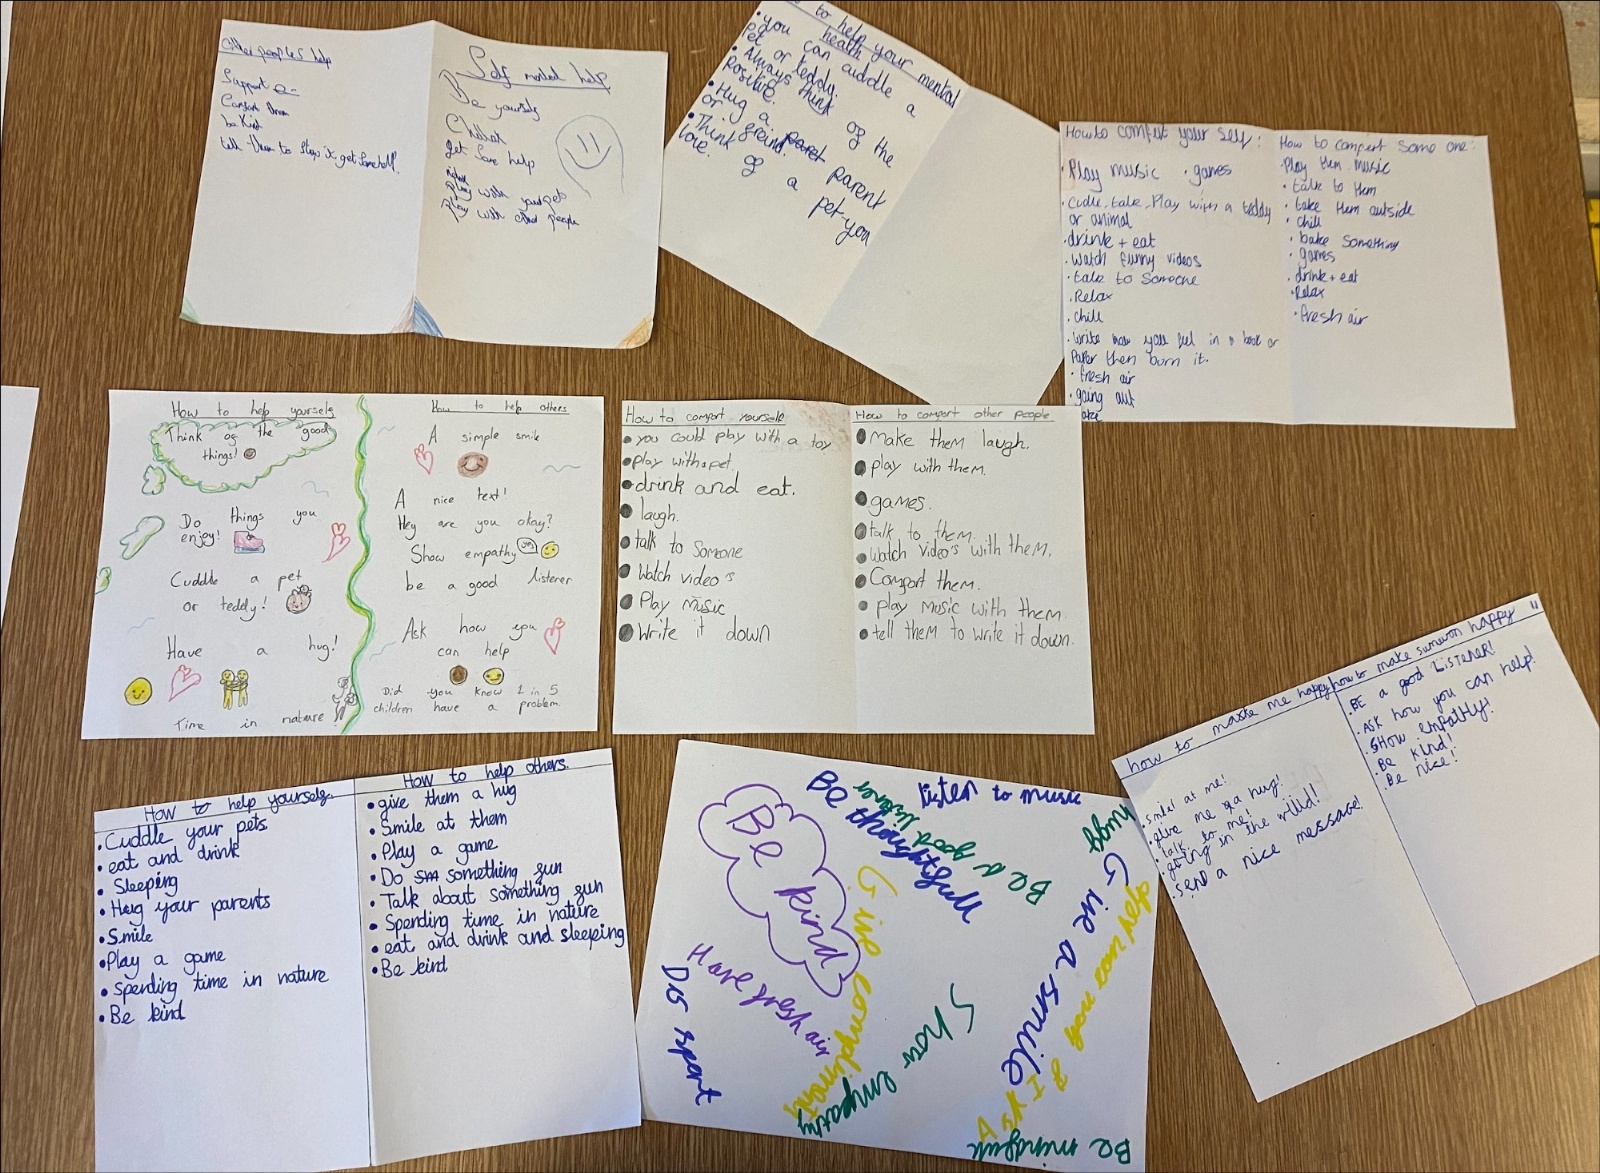 Other peoples help
Support
Comfort them
be kind
tell them to stop it get some help!
Self mental help
Be yourself
Chillax
get some help
Play with your pet
Play with other people
to help your mental
health
• you can cuddle a
pet or teddy.
• Always think of the
positive.
• Hug a parent
or freind.
• Think of a pet you
love.
How to comfort your self:
• Play music • games
• cudle, talk, Play with a teddy
or animal
• drink + eat
• Watch funny videos
• talk to Someone
• Relax
• chill
• Write how you feel in a book or
Paper then burn it.
• fresh air
• going out
How to comfort Some one:
• Play them music
• talk to them
• take them outside
• chill
• bake Something
• games
• drink + eat
• Relax
• fresh air
How to help yourself
Think of the good
things!
Do things you
enjoy!
Cuddle a pet
or teddy!
Have a hug!
Time in nature!
How to help others
A simple smile
A nice text!
Hey are you okay?
Show empathy
be a good listener
Ask how you
can help
Did you know 1 in 5
children have a problem.
How to comfort yourself
• you could play with a toy
• play with a pet.
• drink and eat.
• laugh.
• talk to Someone
• Watch video's
• Play Music
• Write it down
How to comfort other people
• Make them laugh.
• play with them.
• games.
• talk to them.
• Watch video's with them.
• Comfort them.
• play Music with them.
• tell them to write it down.
how to maske me happy
• smile! at me!
• give me a hug!
• talk to me!
• going in the wild!
• send a nice message!
how to make someon happy
• BE a good LISTENER!
• ASK how you can help!
• SHOW empathy!
• Be kind!
• Be nice!
How to help yourself.
• Cuddle your pets
• eat and drink
• Sleeping
• Hug your parents
• Smile
• Play a game
• Spending time in nature
• Be kind
How to help others.
• give them a hug
• Smile at them
• Play a game
• Do something fun
• Talk about something fun
• Spending time in nature
• eat and drink and sleeping
• Be kind
Be kind
Be thoughtfull
listen to music
Be a good listener
hugs
Give compliments
Give a smile
Have fresh air
Do sport
Show empathy
Be mindfull